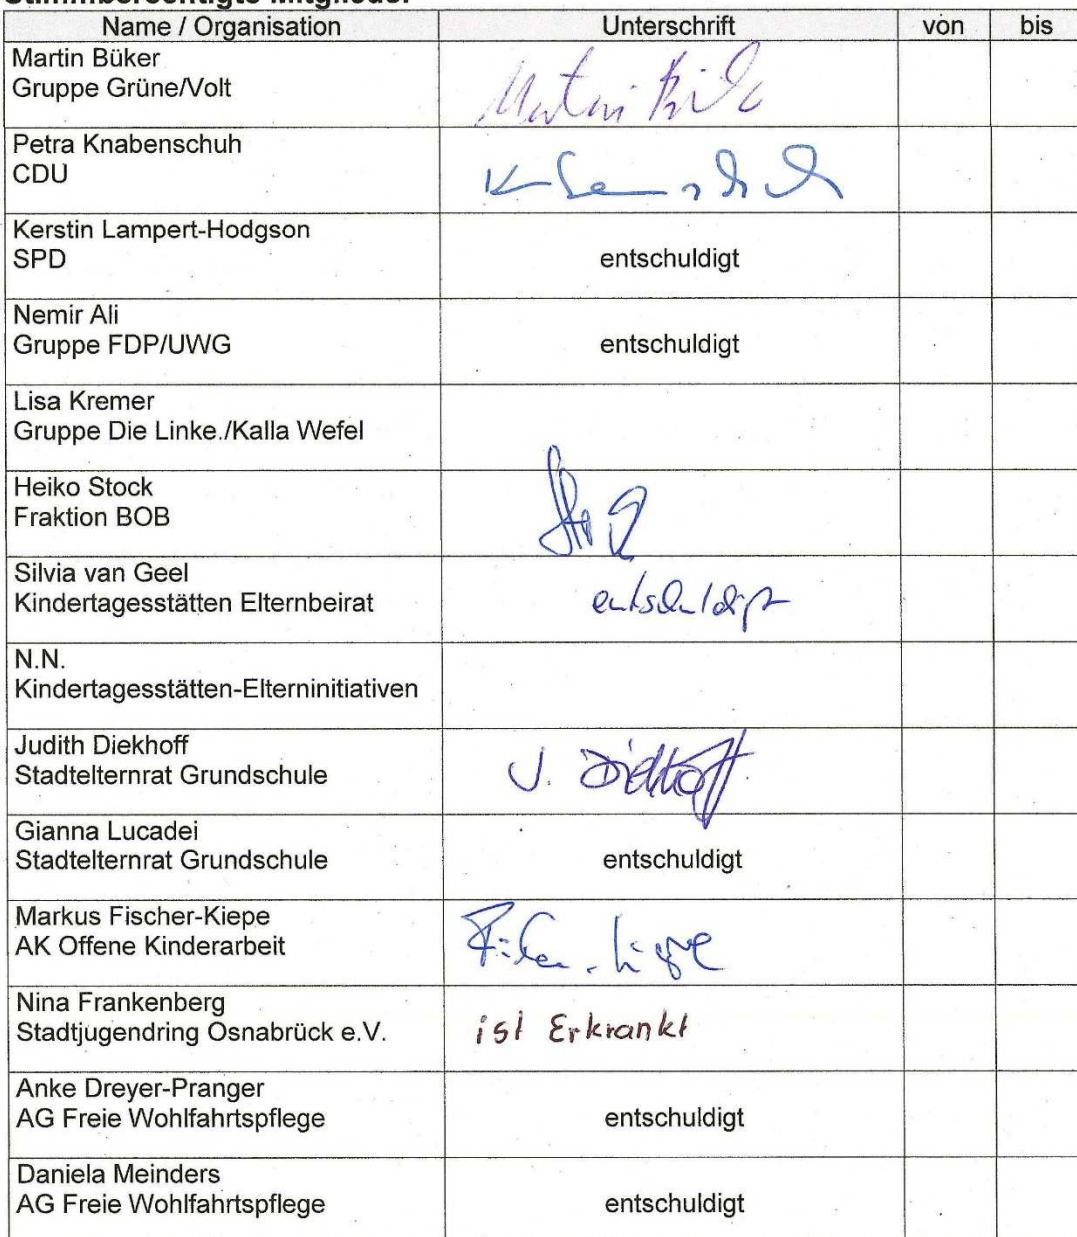 Stimmberechtigte Mitglieder
Name / Organisation Unterschrift von bis
Martin Büker
Gruppe Grüne/Volt
Martin Büke
Petra Knabenschuh
CDU
Kerstin Lampert-Hodgson
SPD
entschuldigt
Nemir Ali
Gruppe FDP/UWG
entschuldigt
Lisa Kremer
Gruppe Die Linke./Kalla Wefel
Heiko Stock
Fraktion BOB
Silvia van Geel
Kindertagesstätten Elternbeirat
entschuldigt
N.N.
Kindertagesstätten-Elterninitiativen
Judith Diekhoff
Stadtelternrat Grundschule
J. Diekhoff
Gianna Lucadei
Stadtelternrat Grundschule
entschuldigt
Markus Fischer-Kiepe
AK Offene Kinderarbeit
Nina Frankenberg
Stadtjugendring Osnabrück e.V.
ist Erkrankt
Anke Dreyer-Pranger
AG Freie Wohlfahrtspflege
entschuldigt
Daniela Meinders
AG Freie Wohlfahrtspflege
entschuldigt